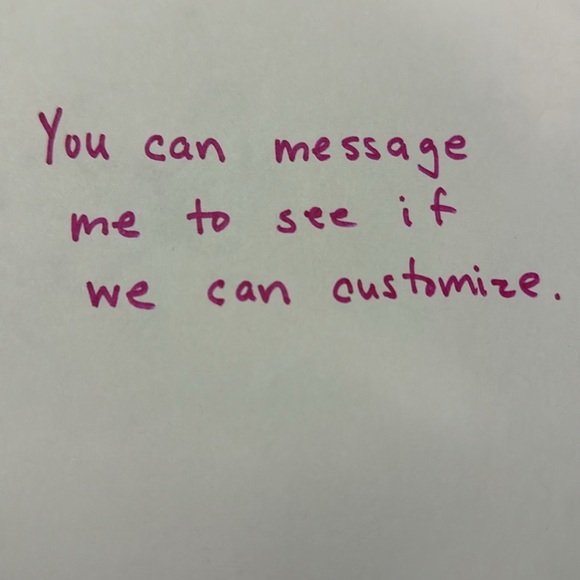 You can message
me to see if
we can customize.